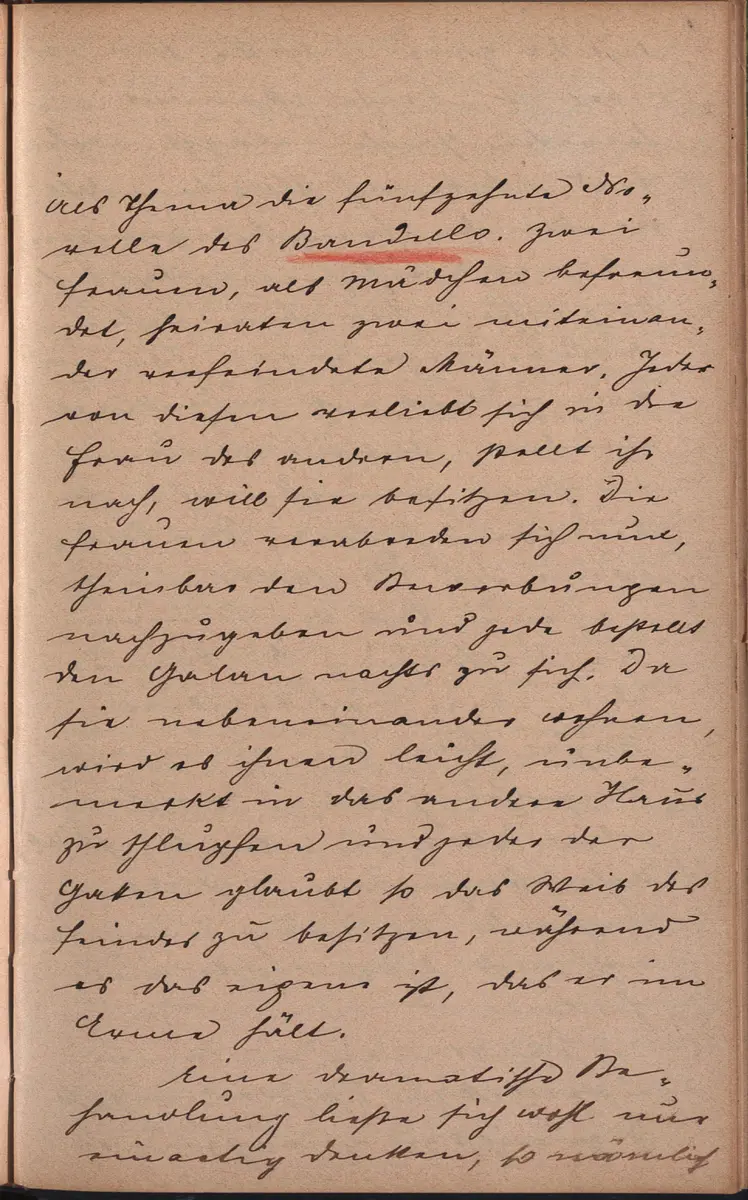 Als Thema die fünfzehnte No-
velle des Bandello. Zwei
Frauen, als Mädchen befreun-
det, heiraten zwei miteinan-
der verfeindete Männer. Jeder
von diesen verliebt sich in die
Frau des andern, stellt ihr
nach, will sie besitzen. Die
Frauen verabreden sich nun,
scheinbar den Bewerbungen
nachzugeben und jede bestellt
den Galan nachts zu sich. Da
sie nebeneinander wohnen,
wird es ihnen leicht, unbe-
merkt in das andere Haus
zu schlupfen und jeder der
Gatten glaubt so das Weib des
Feindes zu besitzen, während
es das eigene ist, das er im
Arme hält.
Eine dramatische Be-
handlung ließe sich wohl nur
einactig denken, so nämlich